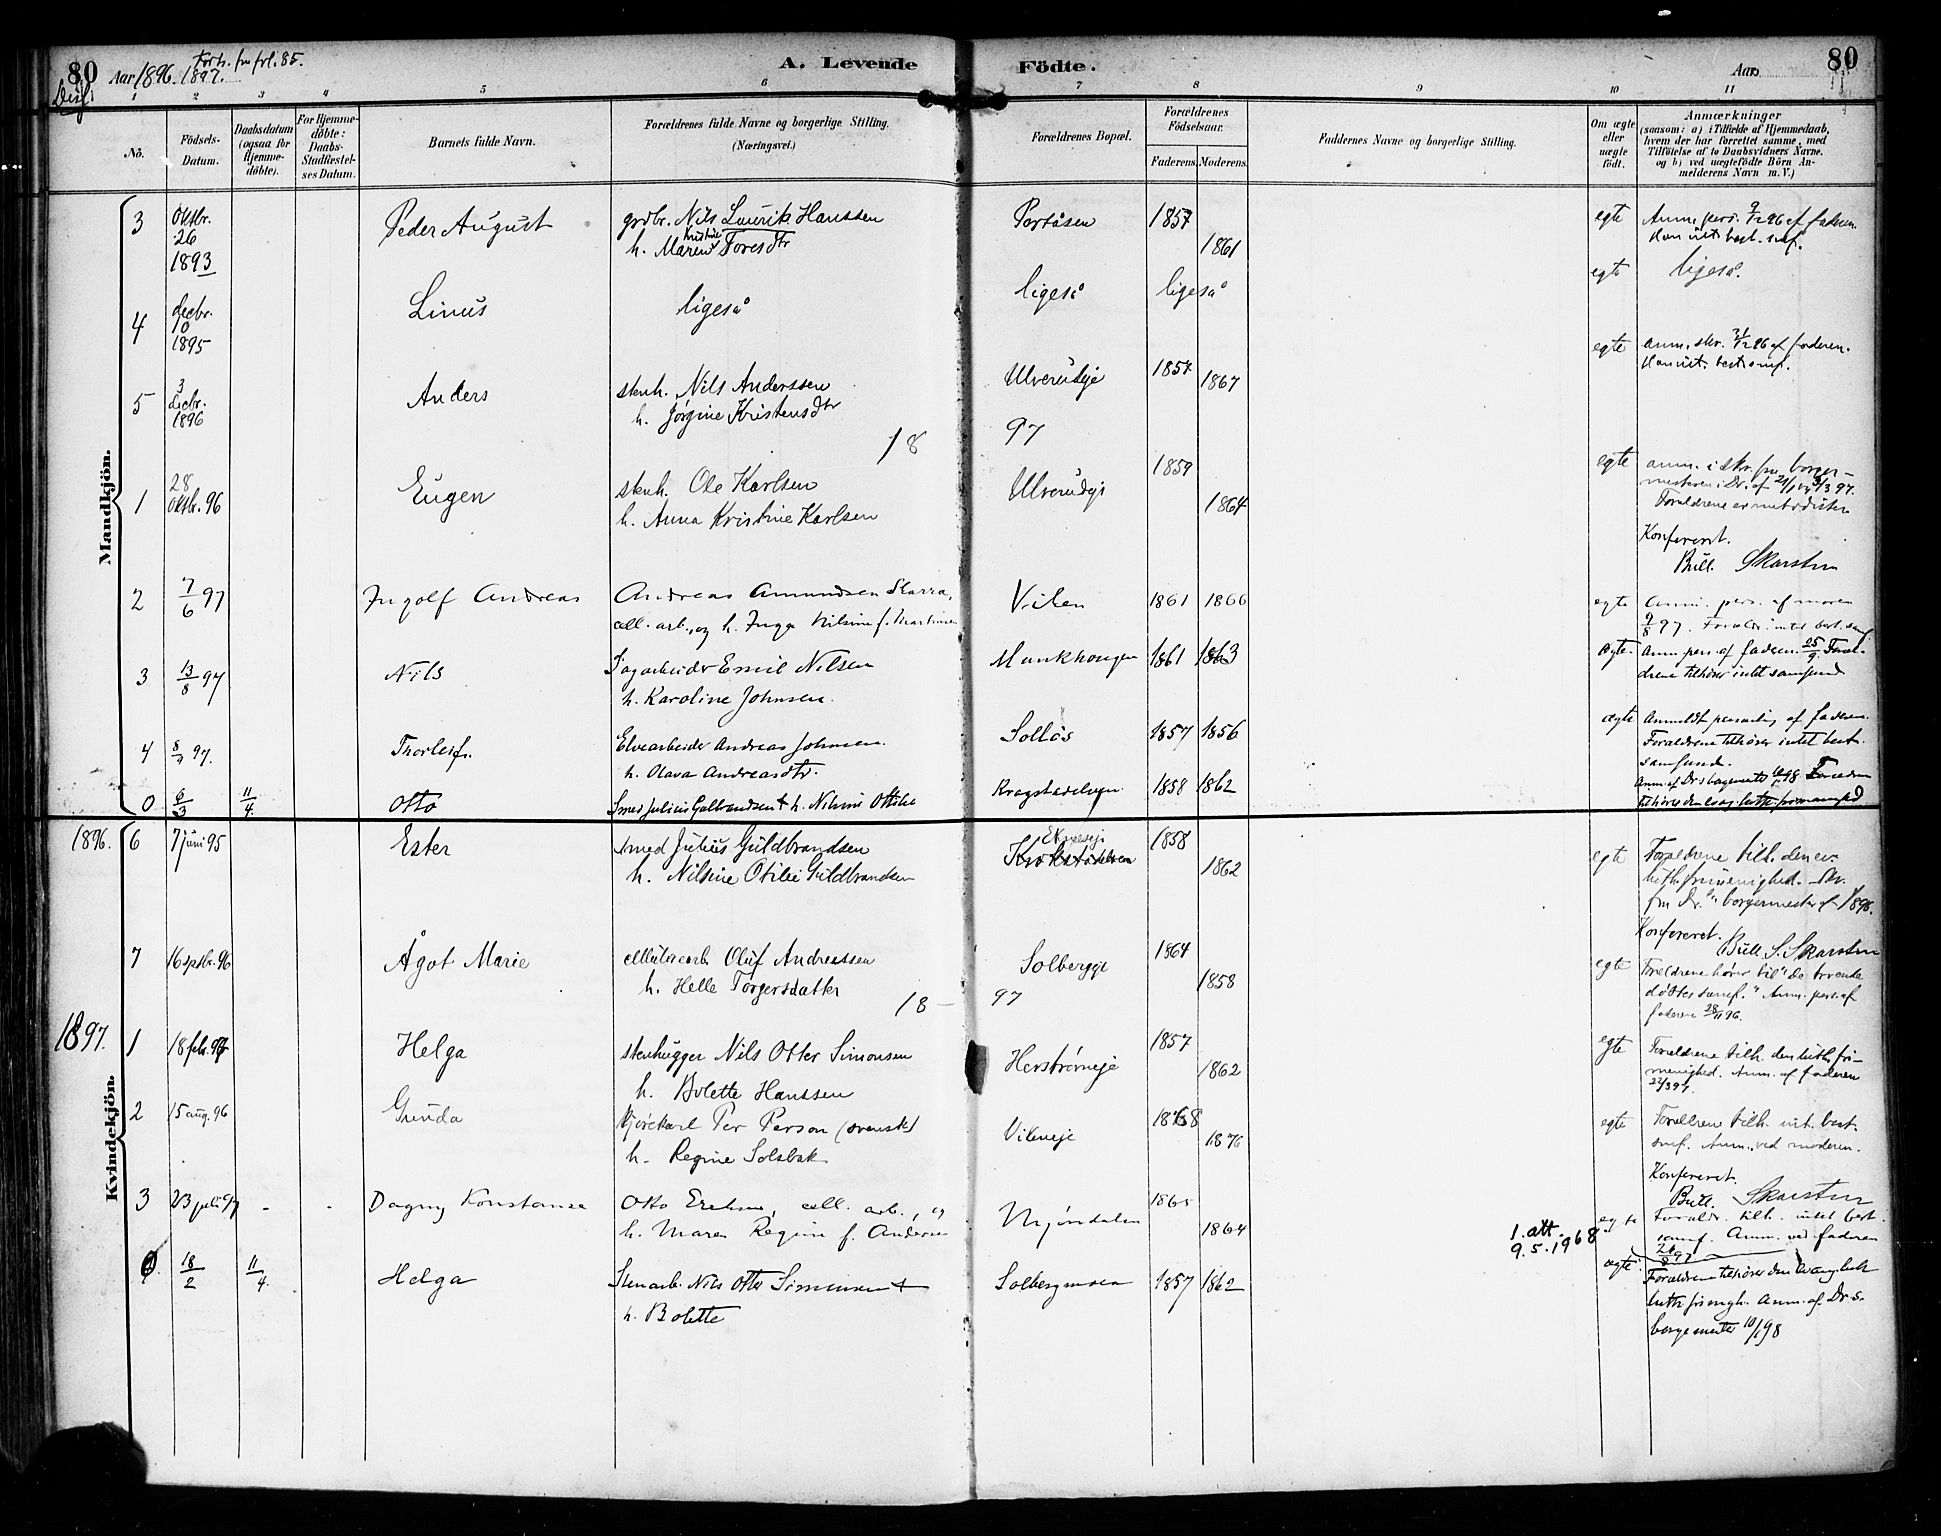 80 Aar 1896. 1897. Forts. fra fol. 85.
A. Levende Födte.
Aar 80
Diss.
1 2 3 4 5 6 7 8 9 10 11
No.
Födsels-Datum.
Daabsdatum (ogsaa for Hjemme-döbte).
For Hjemme-döbte: Daabs-Stadfæstel-ses Datum.
Barnets fulde Navn.
Forældrenes fulde Navne og borgerlige Stilling. (Næringsvei.)
Forældrenes Bopæl.
Forældrenes Födselsaar.
Faderens. Moderens.
Faddernes Navne og borgerlige Stilling.
Om ægte eller uægte født.
Anmærkninger (saasom: a) i Tilfælde af Hjemmedaab, hvem der har forrettet samme, med Tilföielse af to Daabsvidners Navne, og b) ved uægtefödte Börn An-melderens Navn m. V.)
Mandkjön.
3 Oktbr. 26 1893 Peder August grdbr. Nils Laurits Hanssen Portåsen 1857 egte Anm. pers. 9/12 96 af faderen.
h. Maren Kristine Toresdtr 1861 Har intet best. smf.
4 decbr. 10 1895 Linus ligeså ligeså ligeså egte ligeså.
5 3 decbr. 1896 Anders stenh. Nils Anderssen Ulverudeje 1857 1867 egte anm. skr. 31/12 96 af faderen.
h. Jörgine Kristensdtr Har int. best. smf.
18 97
1 28 Oktbr. 96 Eugen stenh. Ole Karlsen Ulverudeje 1859 egte anm. i skr. fra borger-
h. Anna Kristine Karlsen 1864 mesteren i Dr. af
Forældrene er metodister
Konfereret.
Bull. Skarsten
2 7/6 97 Ingolf Andreas Andreas Amundsen Skarra, Vilen 1861 1866 egte Anm. pers. af moren
cell. arb., og h. Inga Nilsine f. Martinsen 9/8 97. Foreldr. intet best. samf.
3 13/8 97 Nils Dagarbeider Emil Nilsen Munkhaugen 1861 1863 ægte. Anm. pers. af faderen 25/9. Foræl-
h. Karoline Johnsen. drene tilhører intet samfund
4 97. Thorleif. Elvearbeider Andreas Johnsen. Solløs 1857 1856 ægte Anmeldt personlig af faderen.
h. Olava Andreasdtr. Forældrene tilhører intet best. samfund.
0 6/3 11/4. Otto Smed Julius Gulbrandsen + h. Nilsine Ottilie Krogstadelven. 1858 1862 Anm. af Dr.s borgemester 10/1 98 Forældrene tilhører den evag. luth. frimenighed
Kvindekjön.
1896. 6 7 juni 95 Ester smed Julius Guldbrandsen Krokstadelven Ekneseje 1858 egte Forældrene tilh. den ev.
h. Nilsine Otilie Guldbrandsen 1862 luth. frimenighed. Skr.
fra Dr.s borgermester af 1896.
Konfereret.
Bull. S. Skarsten
7 16 sptbr. 96 Ågot Marie cellulosearb. Oluf Andreassen Solbergeje 1864 egte Forældrene hører til "De troende
h. Helle Torgersdatter 1858 døbtes samf." Anm. pers. af
18 - 97 faderen 28/11 96.
1897. 1 18 feb. 97 Helga stenhugger Nils Otter Simonsen Herstrømeje 1857 egte Forældrene tilh. den luth. fri-
h. Bolette Hanssen 1862 menighed. Anm. af faderen 27/3 97.
2 15 aug. 96 Gunda kjørekarl Per Person (svensk) Vileneje 1868 egte Forældrene tilh. int. best.
h. Regine Solsbak 1876 smf. Anm. ved moderen.
Konfereret.
Bull. Skarsten
3 23 juli 97 - - Dagny Konstanse Otto Eriksen, cell. arb., og Mjøndalen 1865 egte Foreldr. tilh. intet best.
h. Maren Regine f. Andersen 1864 samf. Anm. ved faderen
1. att. 9.5.1968
18/2 11/4. Helga Stenarb. Nils Otter Simensen + Solbergmoen 1857 1862 ægte Forældrene tilhører den evang.
h. Bolette luth frimgh. Anm. af Dr.s
borgemester 10/1 98